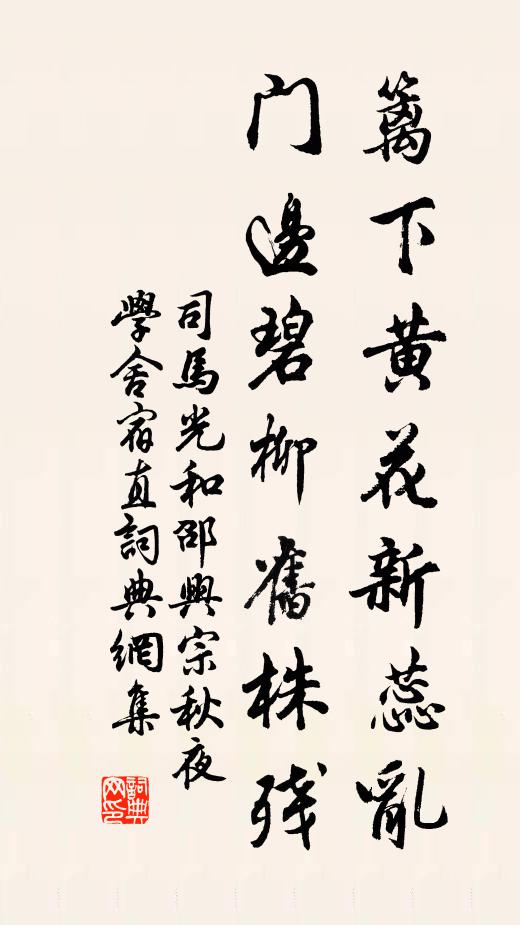 籬下黃花新蕊亂
門邊碧柳舊株殘
司馬光和邵興宗秋夜
學舍宿直詞典網集
詞典
网印